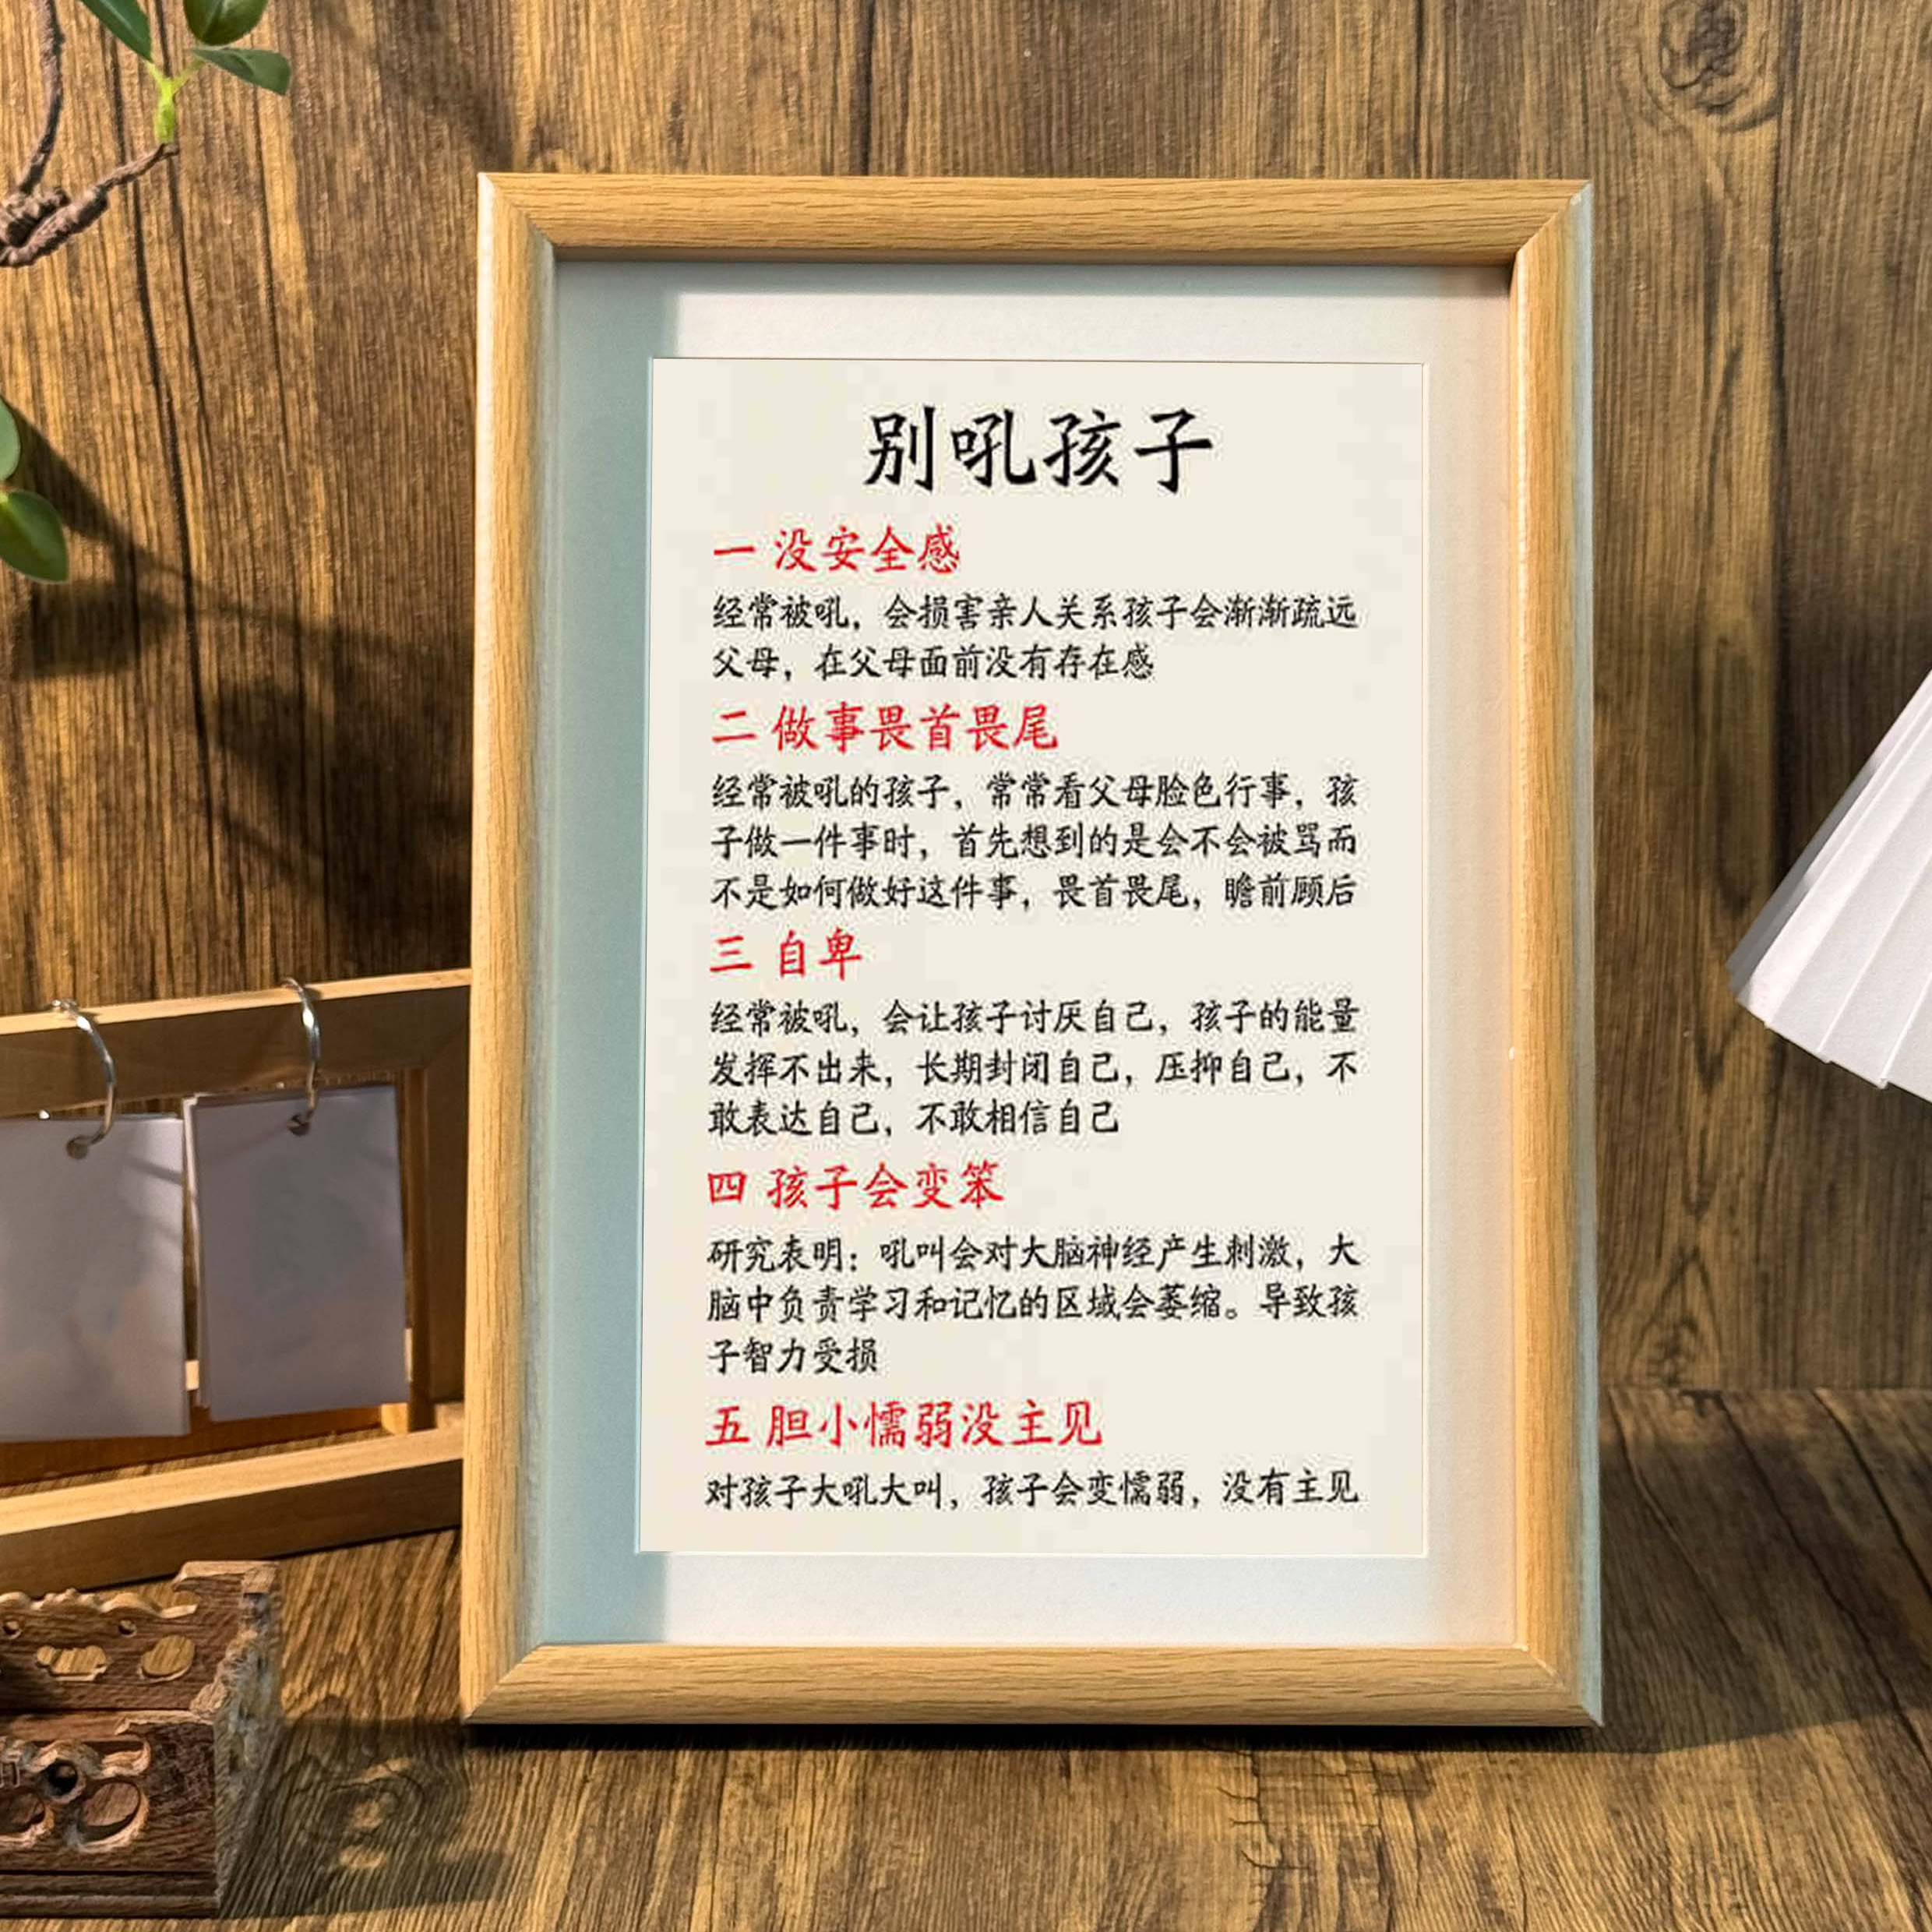 别吼孩子
一 没安全感
经常被吼，会损害亲人关系孩子会渐渐疏远
父母，在父母面前没有存在感
二 做事畏首畏尾
经常被吼的孩子，常常看父母脸色行事，孩
子做一件事时，首先想到的是会不会被骂而
不是如何做好这件事，畏首畏尾，瞻前顾后
三 自卑
经常被吼，会让孩子讨厌自己，孩子的能量
发挥不出来，长期封闭自己，压抑自己，不
敢表达自己，不敢相信自己
四 孩子会变笨
研究表明：吼叫会对大脑神经产生刺激，大
脑中负责学习和记忆的区域会萎缩。导致孩
子智力受损
五 胆小懦弱没主见
对孩子大吼大叫，孩子会变懦弱，没有主见